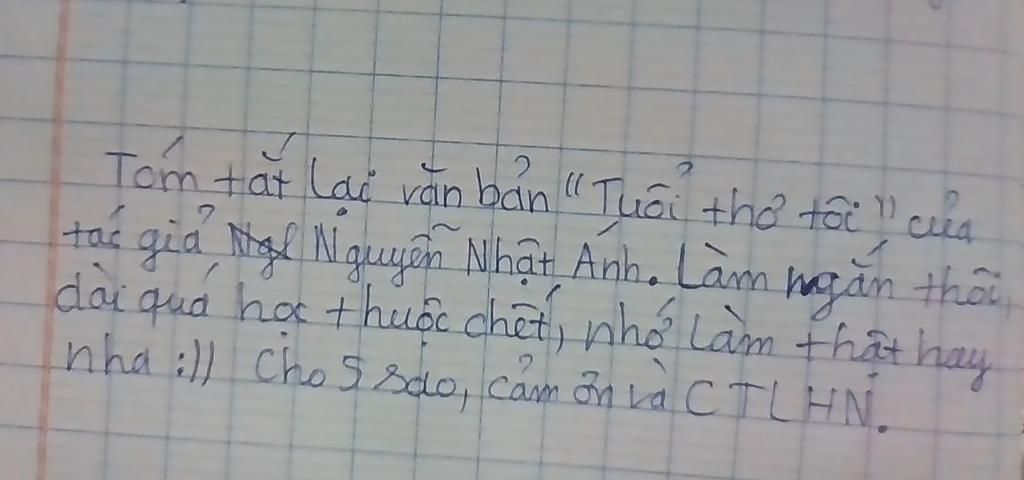 Tóm tắt lại văn bản "Tuổi thơ tôi" của
tác giả Nguyễn Nhật Ánh. Làm ngắn thôi,
dài quá học thuộc chết, nhớ làm thật hay
nha :)) Cho 5 sao, cảm ơn và CTLHN.